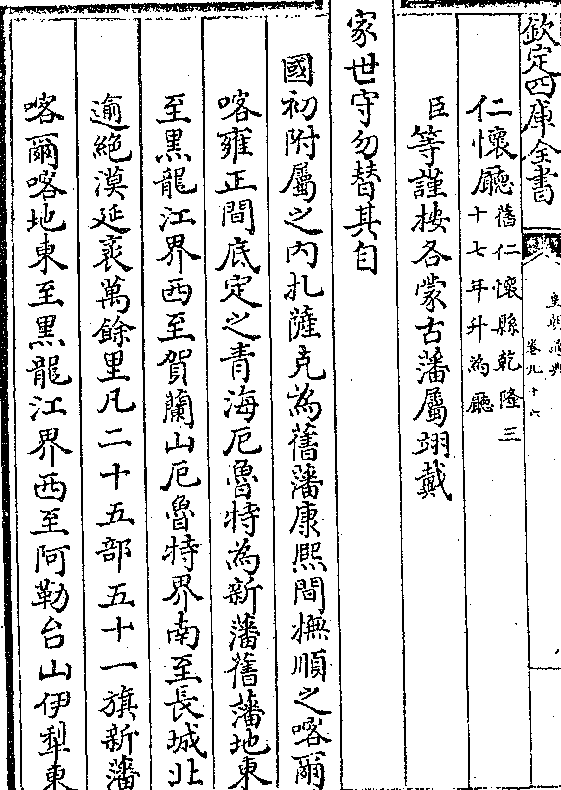 欽定四庫全書
皇朝通典
卷九十六
仁懷廳舊仁懷縣乾隆三
十七年升為廳
臣等謹按各蒙古藩屬翊戴
家世守勿替其自
國初附屬之內扎薩克為舊藩康熙間撫順之喀爾
喀雍正間底定之青海厄魯特為新藩舊藩地東
至黑龍江界西至賀蘭山厄魯特界南至長城北
逾絶漠延袤萬餘里凡二十五部五十一旗新藩
喀爾喀地東至黑龍江界西至阿勒台山伊犁東